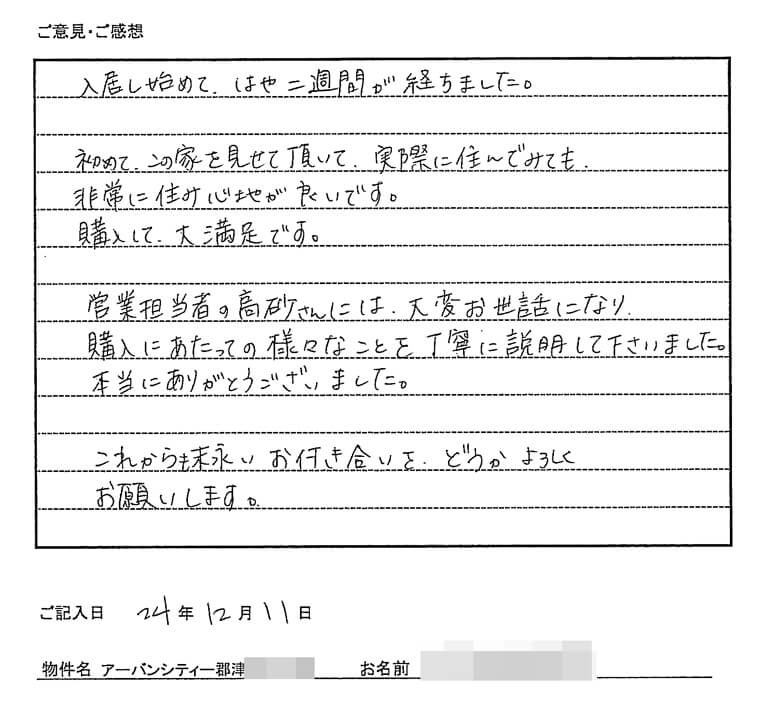 ご意見・ご感想
入居し始めて、はや二週間が経ちました。
初めて、この家を見せて頂いて、実際に住んでみても、
非常に住み心地が良いです。
購入して、大満足です。
営業担当者の高砂さんには、大変お世話になり、
購入にあたっての様々なことを丁寧に説明して下さいました。
本当にありがとうございました。
これからも末永いお付き合いを、どうかよろしく
お願いします。
ご記入日 24年12月11日
物件名 アーバンシティー郡津 お名前